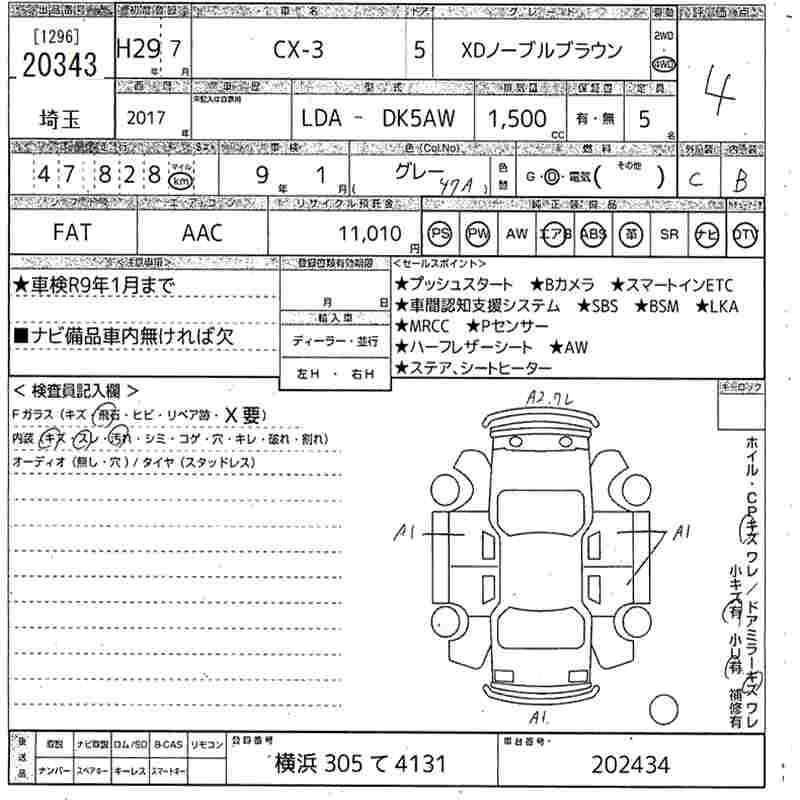 出品番号 初度登録 車名 ドア グレード 駆動 評価点
[1296]
20343
H29年 7月 CX-3 5 XDノーブルブラウン 2WD 4WD
4
西暦 車歴 型式 排気量 保証書 定員
埼玉
2017年 LDA - DK5AW 1,500cc 有・無 5名
走行 車検 色 (Col.No) 燃料 外装 内装
47828 マイル km 9年 1月 グレー 47A 色替 G・D・電気( その他 ) C B
シフト エアコン リサイクル預託金 純正装備品
FAT AAC 11,010円 PS PW AW エアB ABS 革 SR ナビ DTV
<注意事項>
★車検R9年1月まで
■ナビ備品車内無ければ欠
登録書類有効期限
月 日
輸入車
ディーラー・並行
左H・右H
<セールスポイント>
★プッシュスタート ★Bカメラ ★スマートインETC
★車間認知支援システム ★SBS ★BSM ★LKA
★MRCC ★Pセンサー
★ハーフレザーシート ★AW
★ステア、シートヒーター
< 検査員記入欄 >
Fガラス (キズ・飛石・ヒビ・リペア跡・X要)
内装 (キズ・スレ・汚れ・シミ・コゲ・穴・キレ・破れ・割れ)
オーディオ (無し・穴) / タイヤ (スタッドレス)
キーロック
A2.フレ
A1
A1
A1.
ホイル・CP(キズ ワレ / ドアミラーキズ ワレ
小キズ有 小U有 補修有
後送品
取説 ナビ取説 ロム/SD B-CAS リモコン
ナンバー スペアキー キーレス スマートキー
登録番号
横浜 305 て 4131
車台番号
202434